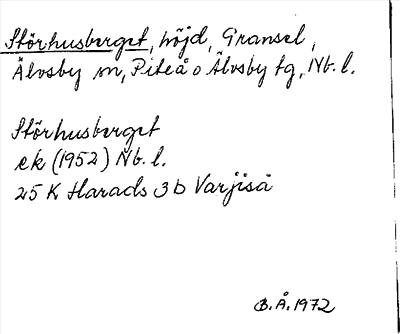 Störhusberget, höjd, Gransel,
Älvsby sn, Piteå o Älvsby tg, Nb. l.
Störhusberget
ek (1952) Nb. l.
25 K Harads 3 b Varjiså
B.Å. 1972